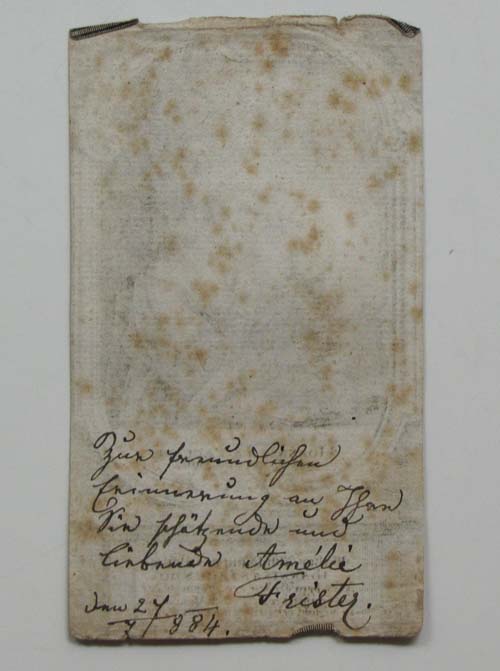 Zur freundlichen
Erinnerung an Ihre
Sie schätzende und
liebende Amélie
Frister.
den 27/7 884.